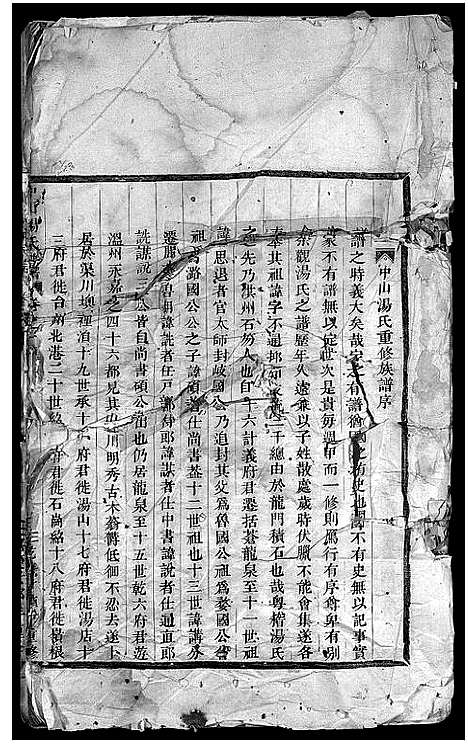 中山湯氏重修族譜序
譜之時義大矣哉家之有譜猶國之有史也國不有史無以記事實
家不有譜無以定世次是貴每一修則鴈行有序尊卑有別
余觀湯氏之譜歷年久遠兼以子姓散處歲時伏臘不能會集遂各
奉其祖諱字不通千總由於龍門積石也哉粵稽湯氏
之先乃洪州石人也自十六計義府君遷括蒼龍泉至十一世祖
諱思退者官太師封岐國公乃追封其父為魯國公祖為婺國公曾
祖潞國公公之子諱碩公仕尚書蓋十二世祖也十三世諱講
遷麗諱詵者任戶部侍郎諱謀者仕中書諱說者仕通直郎
詵謀說三公皆自尚書碩公出也仍居龍泉至十五世乾六府君遊
溫州永嘉之四十六都見其山川明秀古木蓊欝低徊不忍去遂卜
居於渠川坳裡湆十九世承十府君徙湯山十七府君徙湯店十
三府君徙台州北港二十世府君徙石崗路十八府君徙楊根